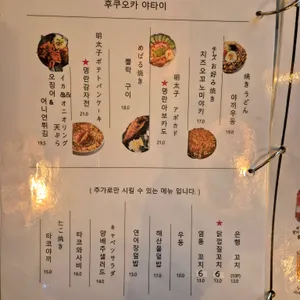 후쿠오카 야타이
焼きうどん
야끼우동
18.0
チーズお好み焼き
치즈오꼬노미야끼
19.0
明太子 アボカド
★ 명란아보카도
18.0
めばる焼き
볼락 구이
18.0
明太子ポテトパンケーキ
★ 명란감자전
21.0
イカ&オニオンリング 天ぷら
오징어 & 어니언튀김
19.0
( 추가로만 시킬 수 있는 메뉴 입니다. )
은행 꼬치
★ 닭껍질 꼬치 6
염통 꼬치 6
우동
해산물덮밥
연어장덮밥
キャベツサラダ
양배추샐러드
타코와사비
たこ焼き
타코야끼